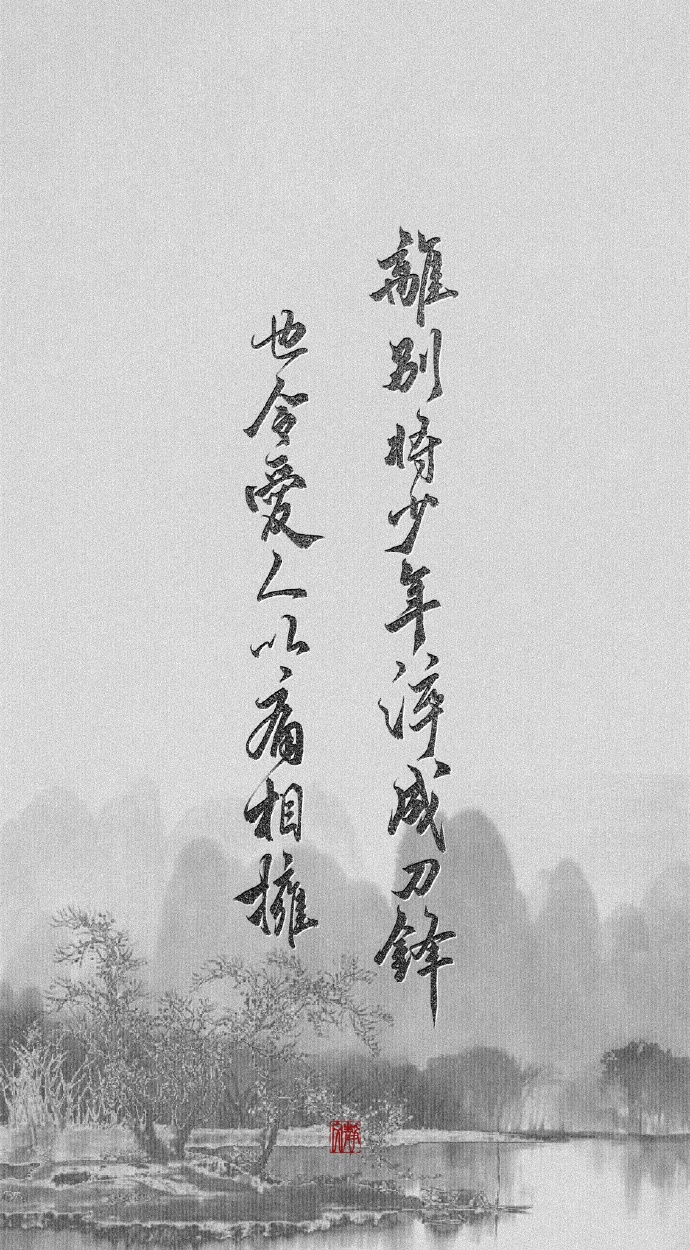 離別將少年淬成刀鋒
也令愛人以痛相擁